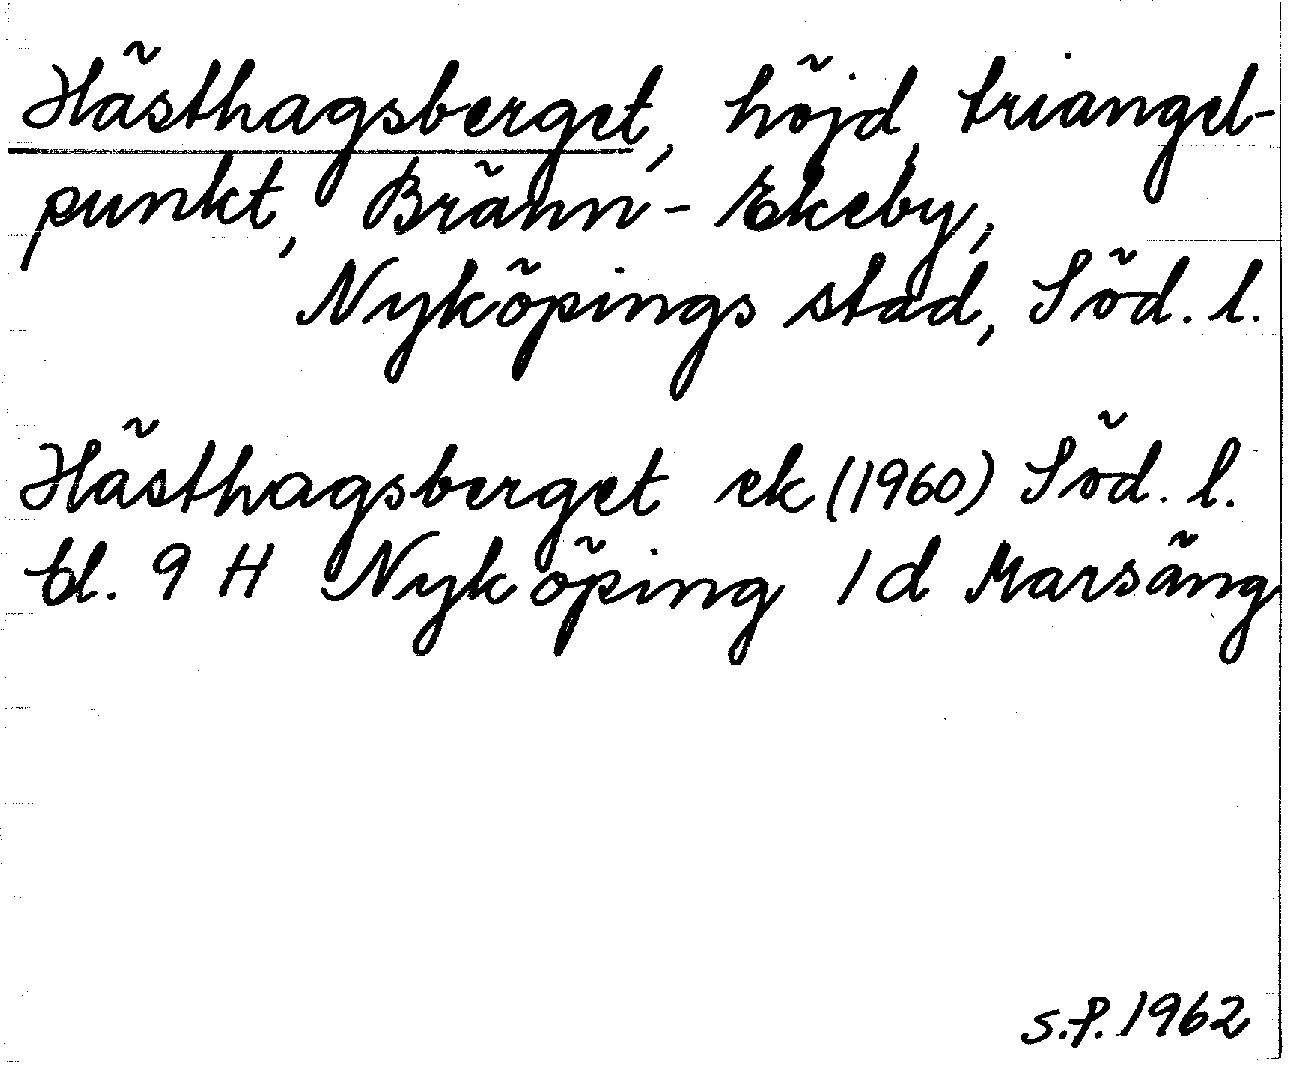 Hästhagsberget, höjd, triangel-
punkt, Bränn-Ekeby,
Nyköpings stad, Söd. l.
Hästhagsberget ek (1960) Söd. l.
bl. 9 H Nyköping 1 d Marsäng
S.P. 1962